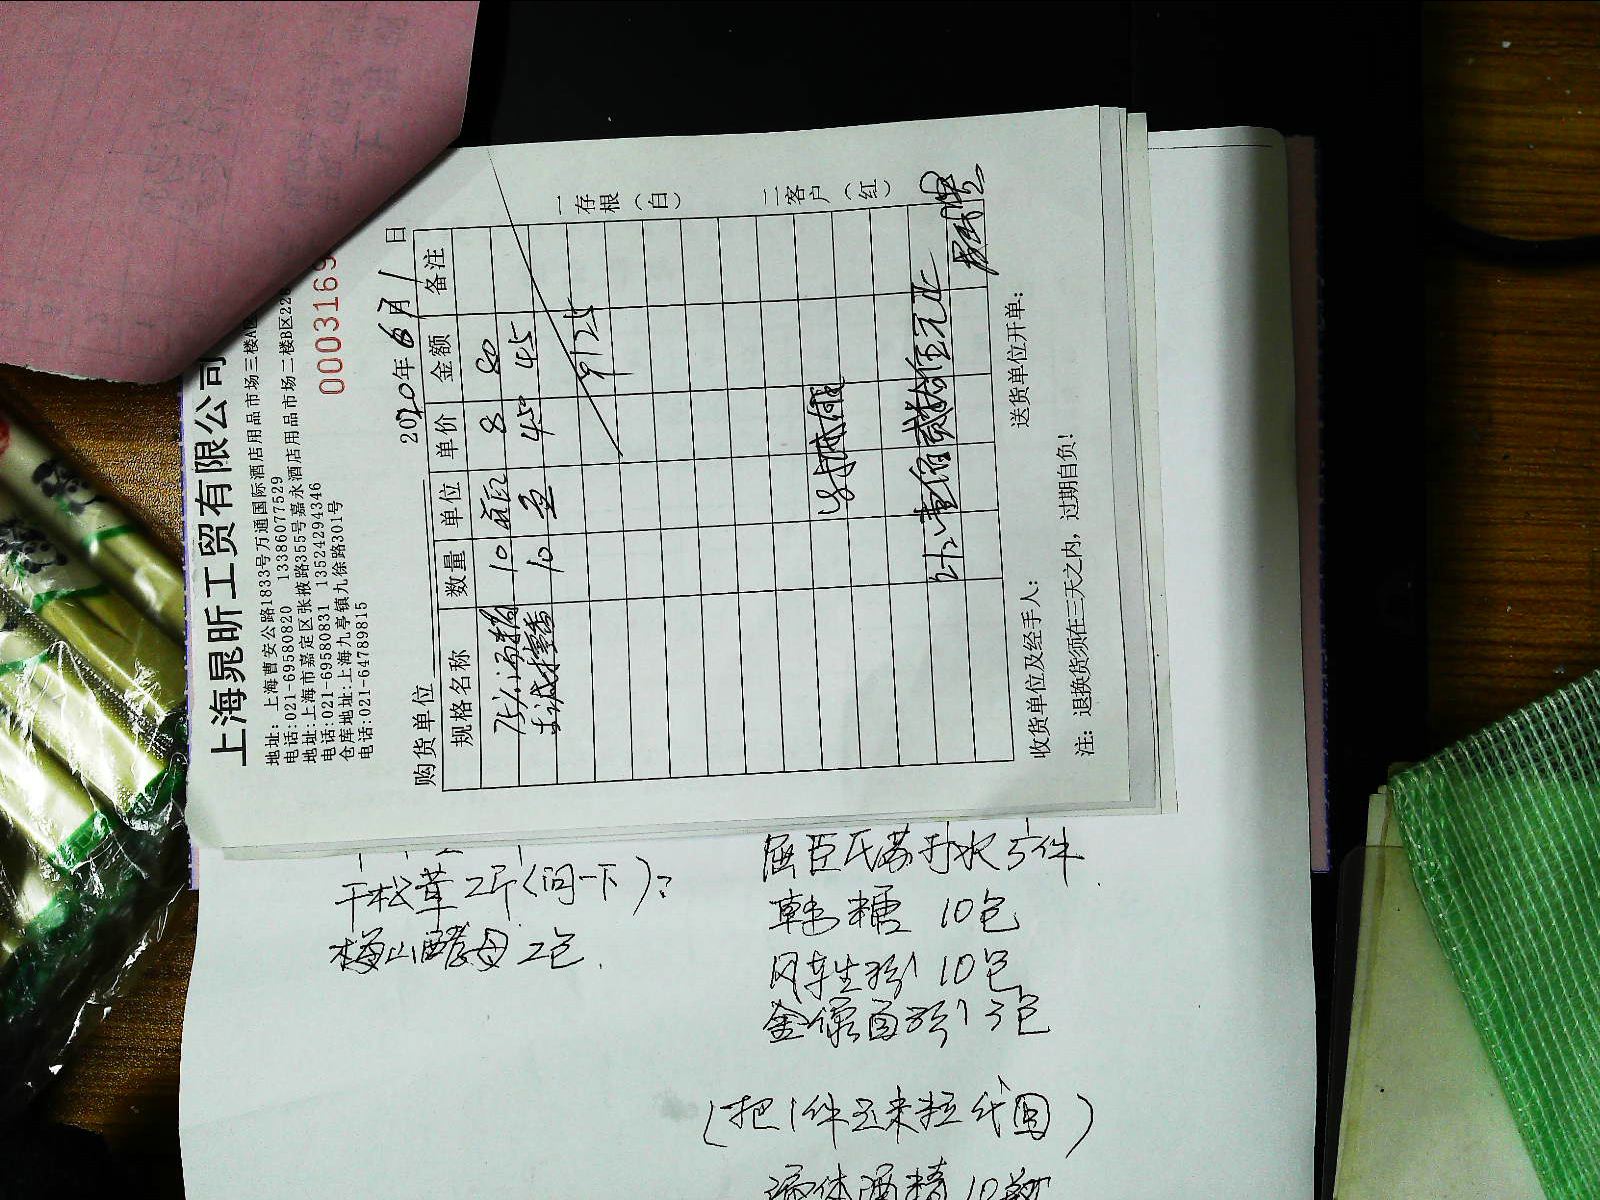 上海晁昕工贸有限公司
地址：上海曹安公路1833号万通国际酒店用品市场三楼A
电话:021-69580820 13386077529
地址:上海市嘉定区张掖路355号嘉永酒店用品市场二楼B区22
电话:021-69580831 13524294346
仓库地址:上海九亭镇九徐路301号
电话:021-64789815
000316
购货单位 2020年6月1日
规格名称 数量 单位 单价 金额 备注
10 瓶 8 80
10 盒 45 45
125
壹佰贰拾伍元正
一存根（白）
二客户（红）
收货单位及经手人： 送货单位开单：
注：退换货须在三天之内，过期自负！
干松茸2斤(问一下)?
梅山酵母2包.
屈臣氏苏打水5件
韩糖 10包
风车生粉 10包
金像面粉 3包
(把1件玉米粒代回)
液体酒精10瓶